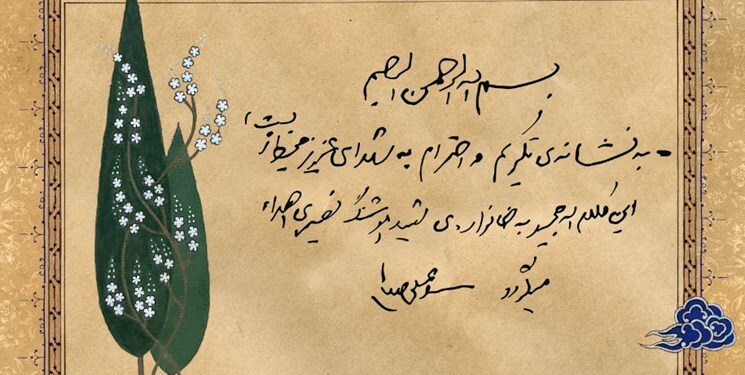 بسم الله الرحمن الرحیم
به نشانه‌ی تکریم و احترام به شهدای عزیز محیط زیست،
این کلام الله مجید به خانواده‌ی شهید نصیری اهداء
میگردد